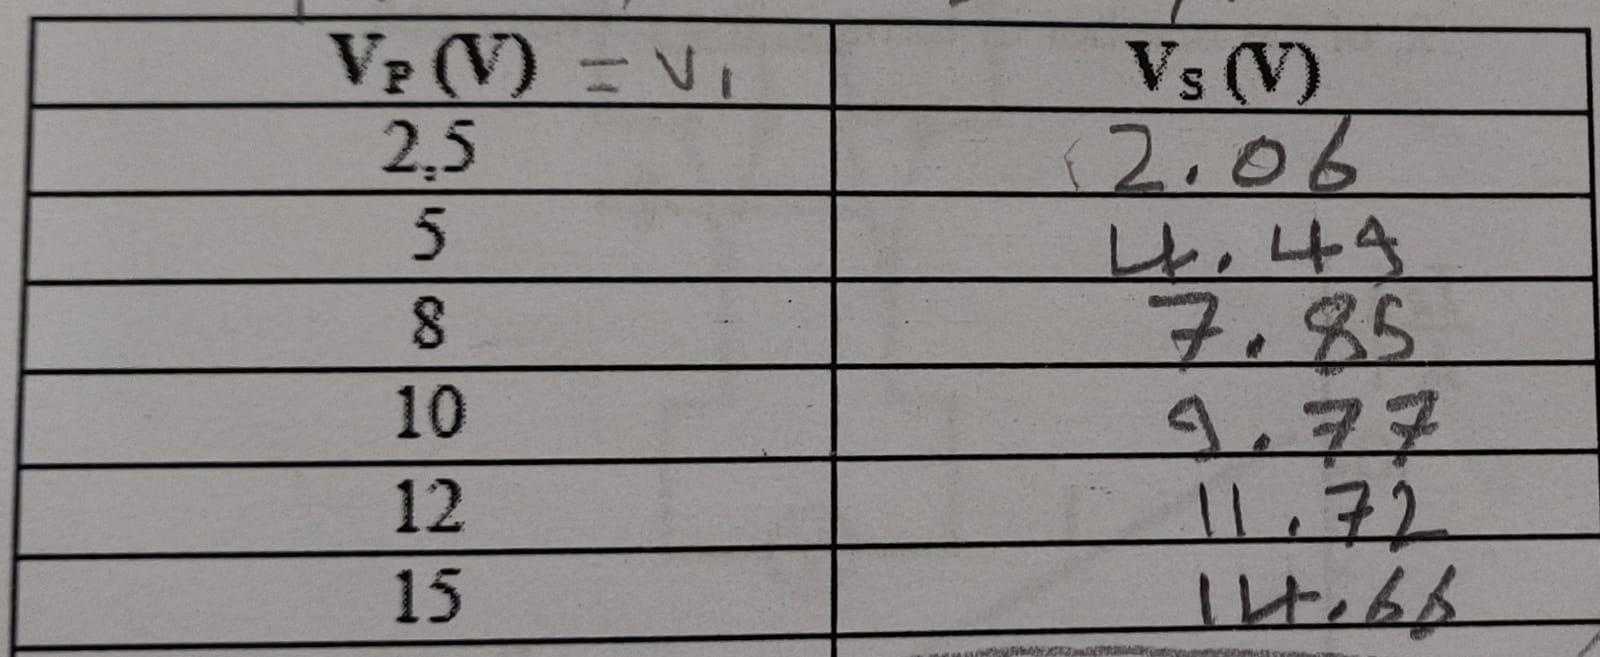 V_P (V) = V₁ V_S (V)
2.5 2.06
5 4.49
8 7.85
10 9.77
12 11.72
15 14.66